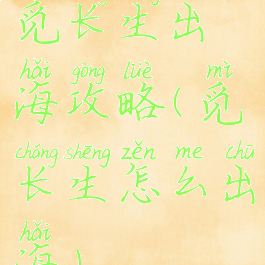 觅长生出
hǎi gōng lüè mì
海攻略(觅
cháng shēng zěn me chū
长生怎么出
hǎi
海)